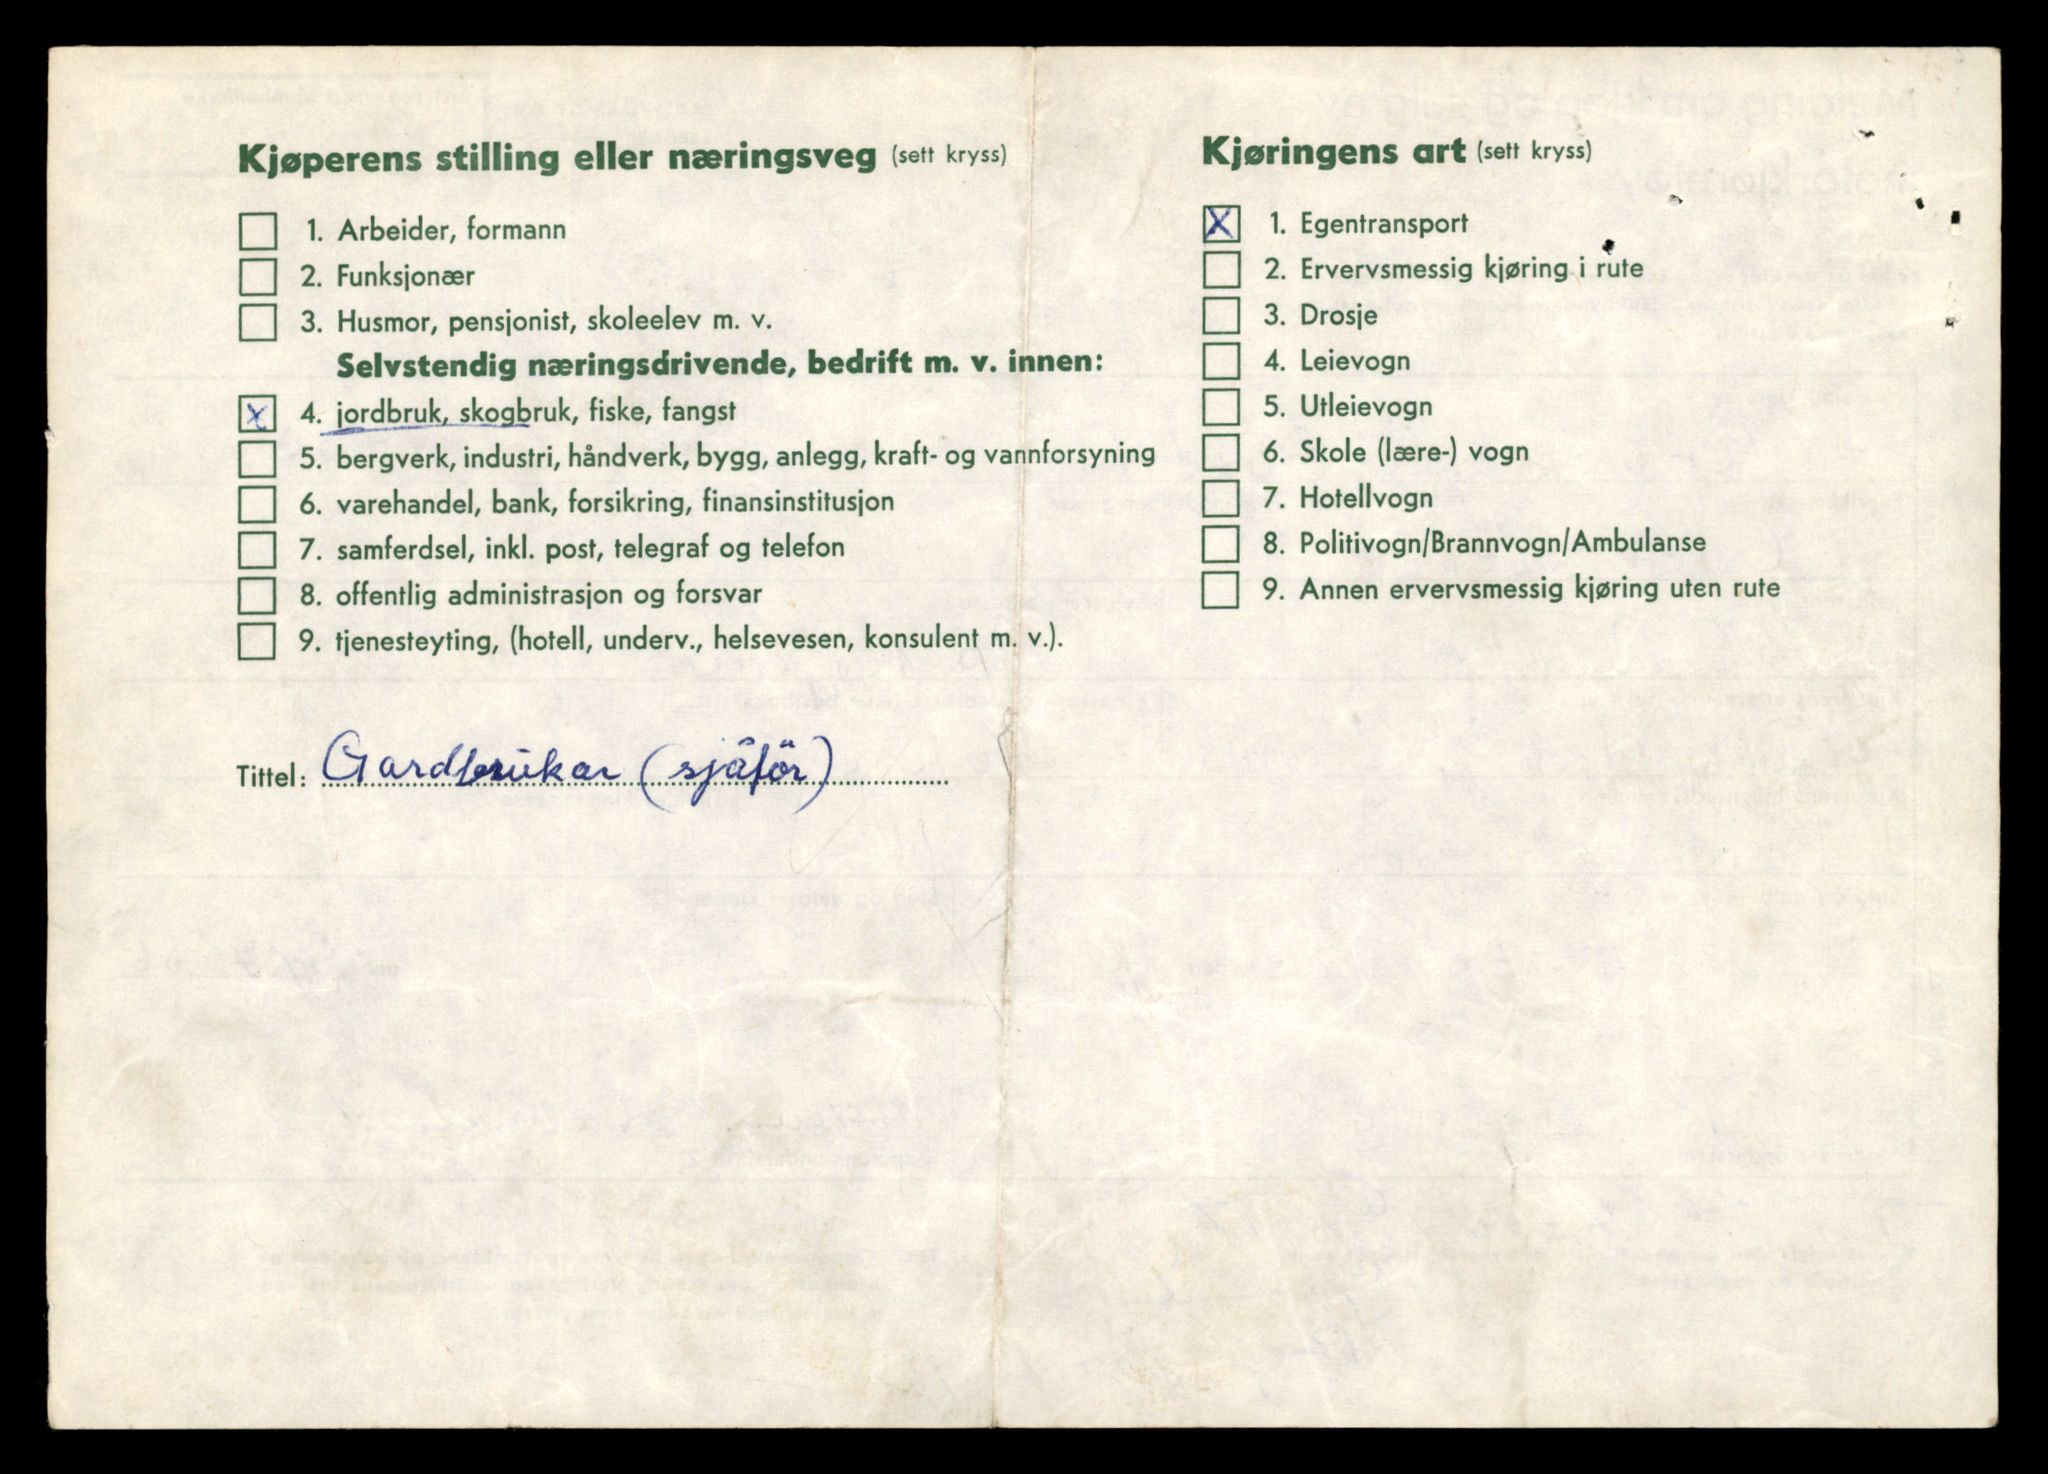 Kjøperens stilling eller næringsveg (sett kryss)
1. Arbeider, formann
2. Funksjonær
3. Husmor, pensjonist, skoleelev m. v.
Selvstendig næringsdrivende, bedrift m. v. innen:
X 4. jordbruk, skogbruk, fiske, fangst
5. bergverk, industri, håndverk, bygg, anlegg, kraft- og vannforsyning
6. varehandel, bank, forsikring, finansinstitusjon
7. samferdsel, inkl. post, telegraf og telefon
8. offentlig administrasjon og forsvar
9. tjenesteyting, (hotell, underv., helsevesen, konsulent m. v.).
Tittel: Gardbrukar (sjåför)
Kjøringens art (sett kryss)
X 1. Egentransport
2. Ervervsmessig kjøring i rute
3. Drosje
4. Leievogn
5. Utleievogn
6. Skole (lære-) vogn
7. Hotellvogn
8. Politivogn/Brannvogn/Ambulanse
9. Annen ervervsmessig kjøring uten rute